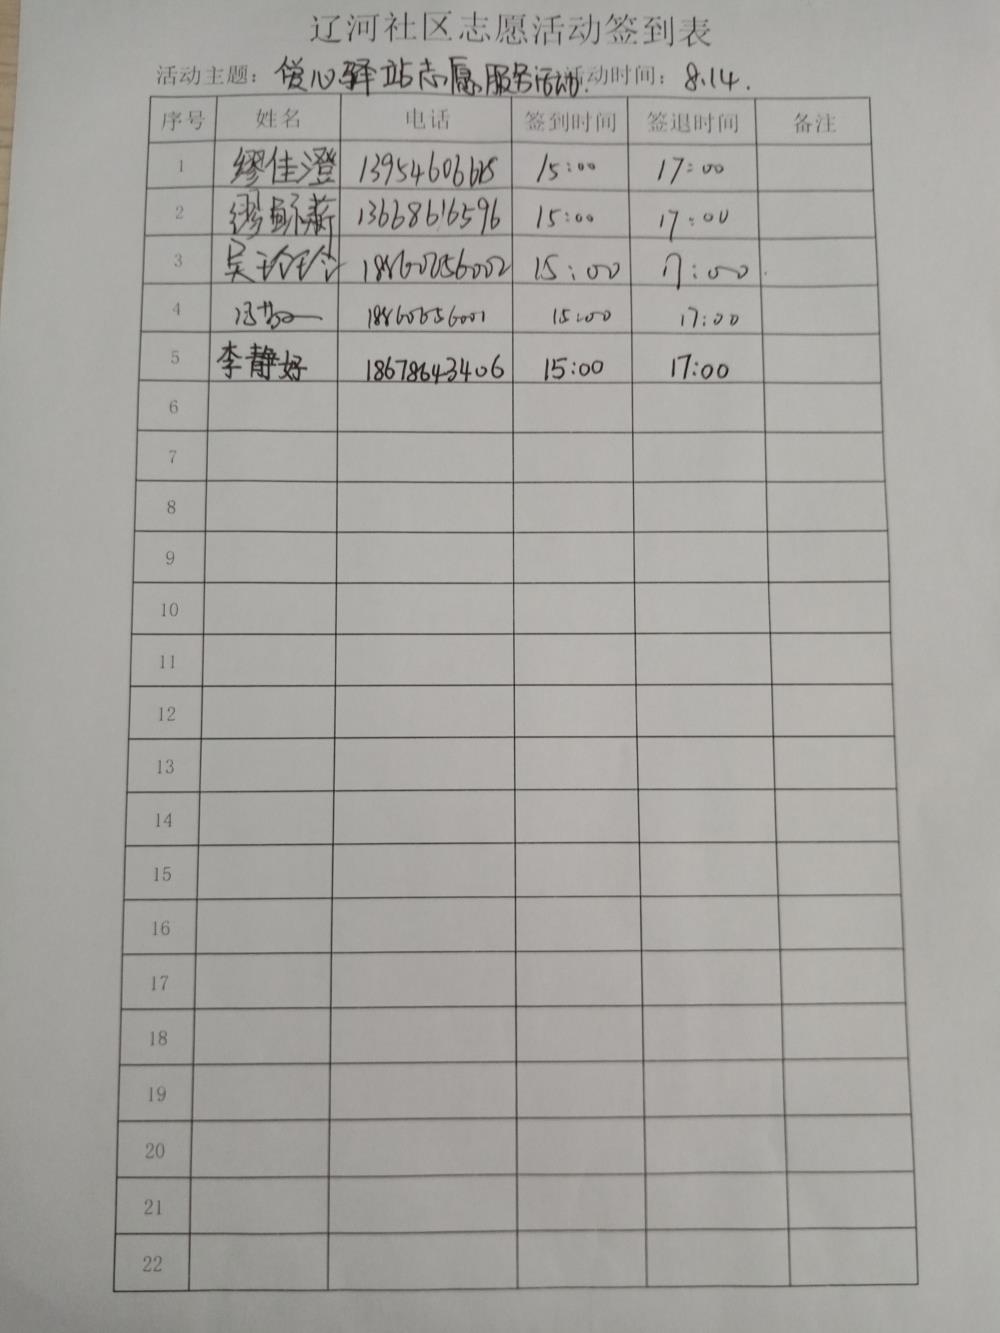 辽河社区志愿活动签到表
活动主题：爱心驿站志愿服务活动. 活动时间：8.14.
序号 姓名 电话 签到时间 签退时间 备注
1 缪佳澄 15:00 17:00
2 缪 13668616596 15:00 17:00
3 吴玲玲 15:00 17:00
4 冯 15:00 17:00
5 李静好 18678643406 15:00 17:00
6
7
8
9
10
11
12
13
14
15
16
17
18
19
20
21
22